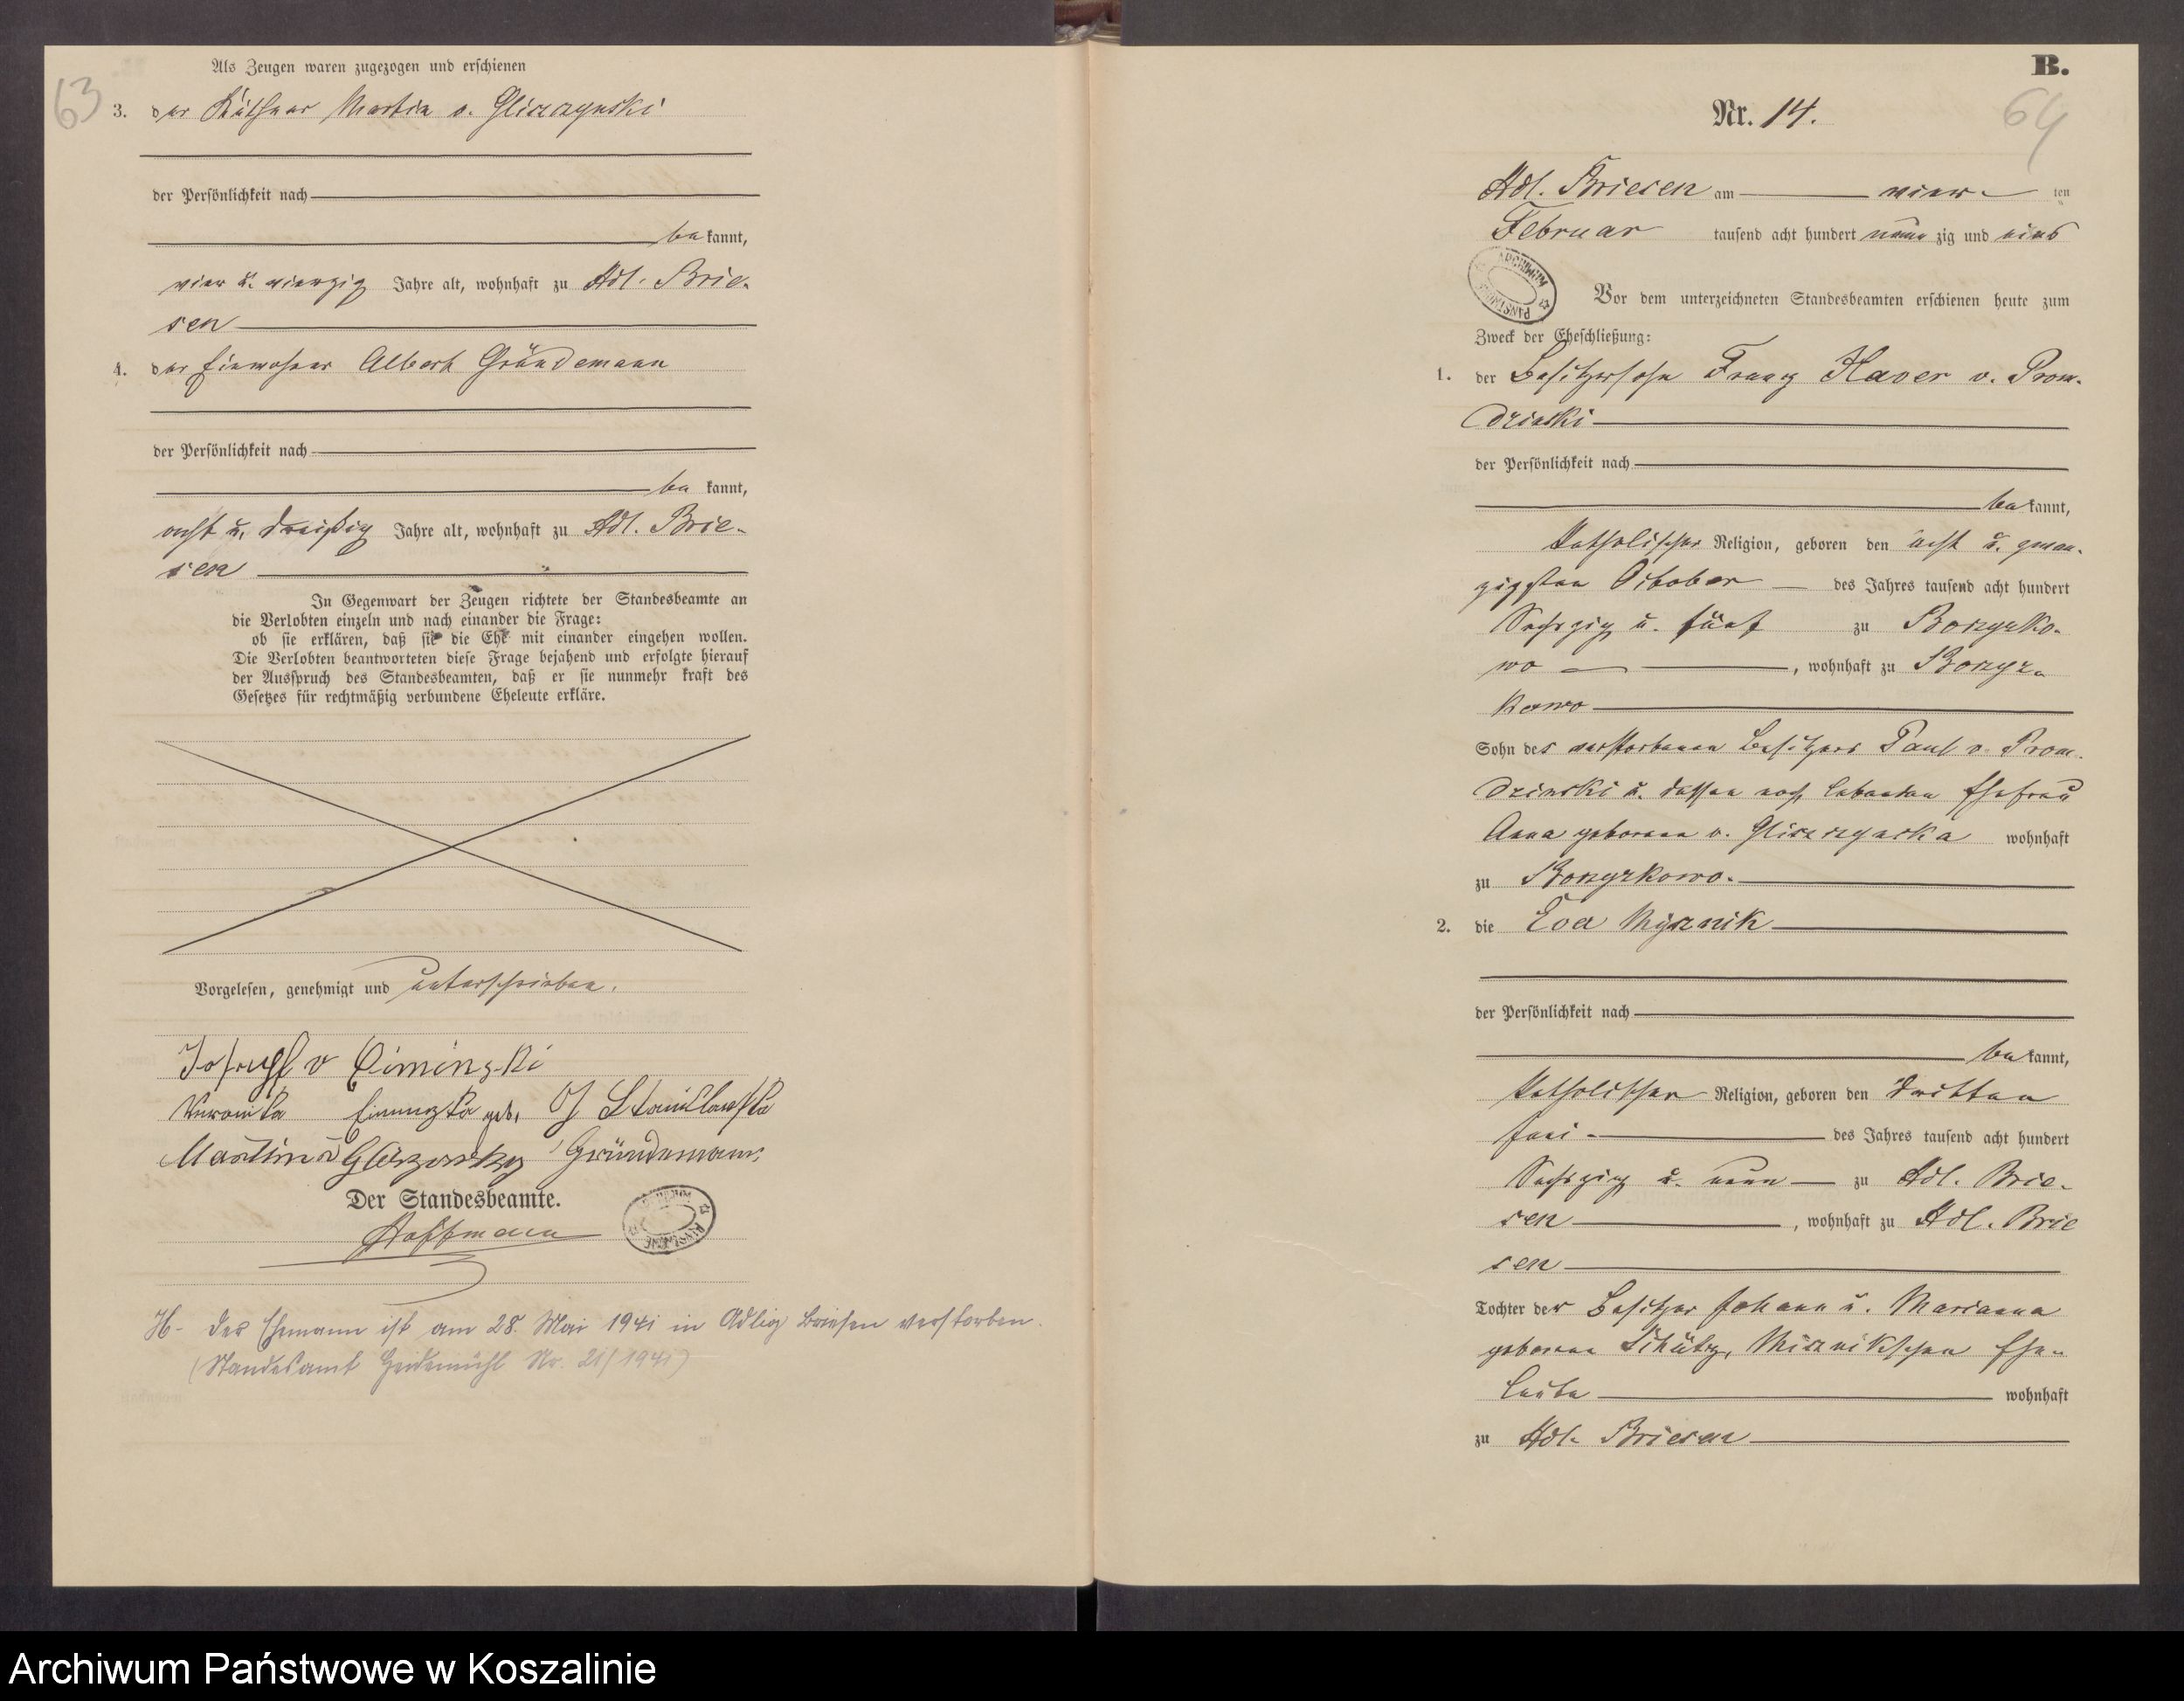 63
Als Zeugen waren zugezogen und erschienen
3. der Käthner Martin v. Gliszczynski
der Persönlichkeit nach
be kannt,
vier u. vierzig Jahre alt, wohnhaft zu Adl. Brie-
sen
4. der Einwohner Albert Gründemann
der Persönlichkeit nach
be kannt,
acht u. dreißig Jahre alt, wohnhaft zu Adl. Brie-
sen
In Gegenwart der Zeugen richtete der Standesbeamte an
die Verlobten einzeln und nach einander die Frage:
ob sie erklären, daß sie die Ehe mit einander eingehen wollen.
Die Verlobten beantworteten diese Frage bejahend und erfolgte hierauf
der Ausspruch des Standesbeamten, daß er sie nunmehr kraft des
Gesetzes für rechtmäßig verbundene Eheleute erkläre.
Vorgelesen, genehmigt und unterschrieben.
Joseph v Ciminski
Veronika geb.
Martin v Gründemann
Der Standesbeamte.
Hoffmann
H- Der Ehemann ist am 28. Mai 1941 in Adlig Briesen verstorben.
(Standesamt Heidemühl Nr. 21/1941)
B.
64
Nr. 14.
Adl. Briesen am vier- ten
Februar tausend acht hundert neun zig und eins
ARCHIWUM PAŃSTWOWE
Vor dem unterzeichneten Standesbeamten erschienen heute zum
Zweck der Eheschließung:
1. der Besitzersohn Franz Xaver v. Prom-
dzinski
der Persönlichkeit nach
be kannt,
katholischer Religion, geboren den acht u. zwan-
zigsten October des Jahres tausend acht hundert
Sechszig u. fünf zu Borzysko-
wo , wohnhaft zu Borzys-
kowo
Sohn des verstorbenen Besitzers Paul v. Prom-
dzinski u. dessen noch lebenden Ehefrau
Anna geborene v. Gliszczynska wohnhaft
zu Borzyskowo.
2. die Eva Misznik
der Persönlichkeit nach
be kannt,
katholischer Religion, geboren den dritten
Juni - des Jahres tausend acht hundert
Sechszig u. neun zu Adl. Brie-
sen , wohnhaft zu Adl. Brie
sen
Tochter der Besitzer Johann u. Marianna
geborene Schütz, Misznikschen Ehe-
leute wohnhaft
zu Adl. Briesen
Archiwum Państwowe w Koszalinie